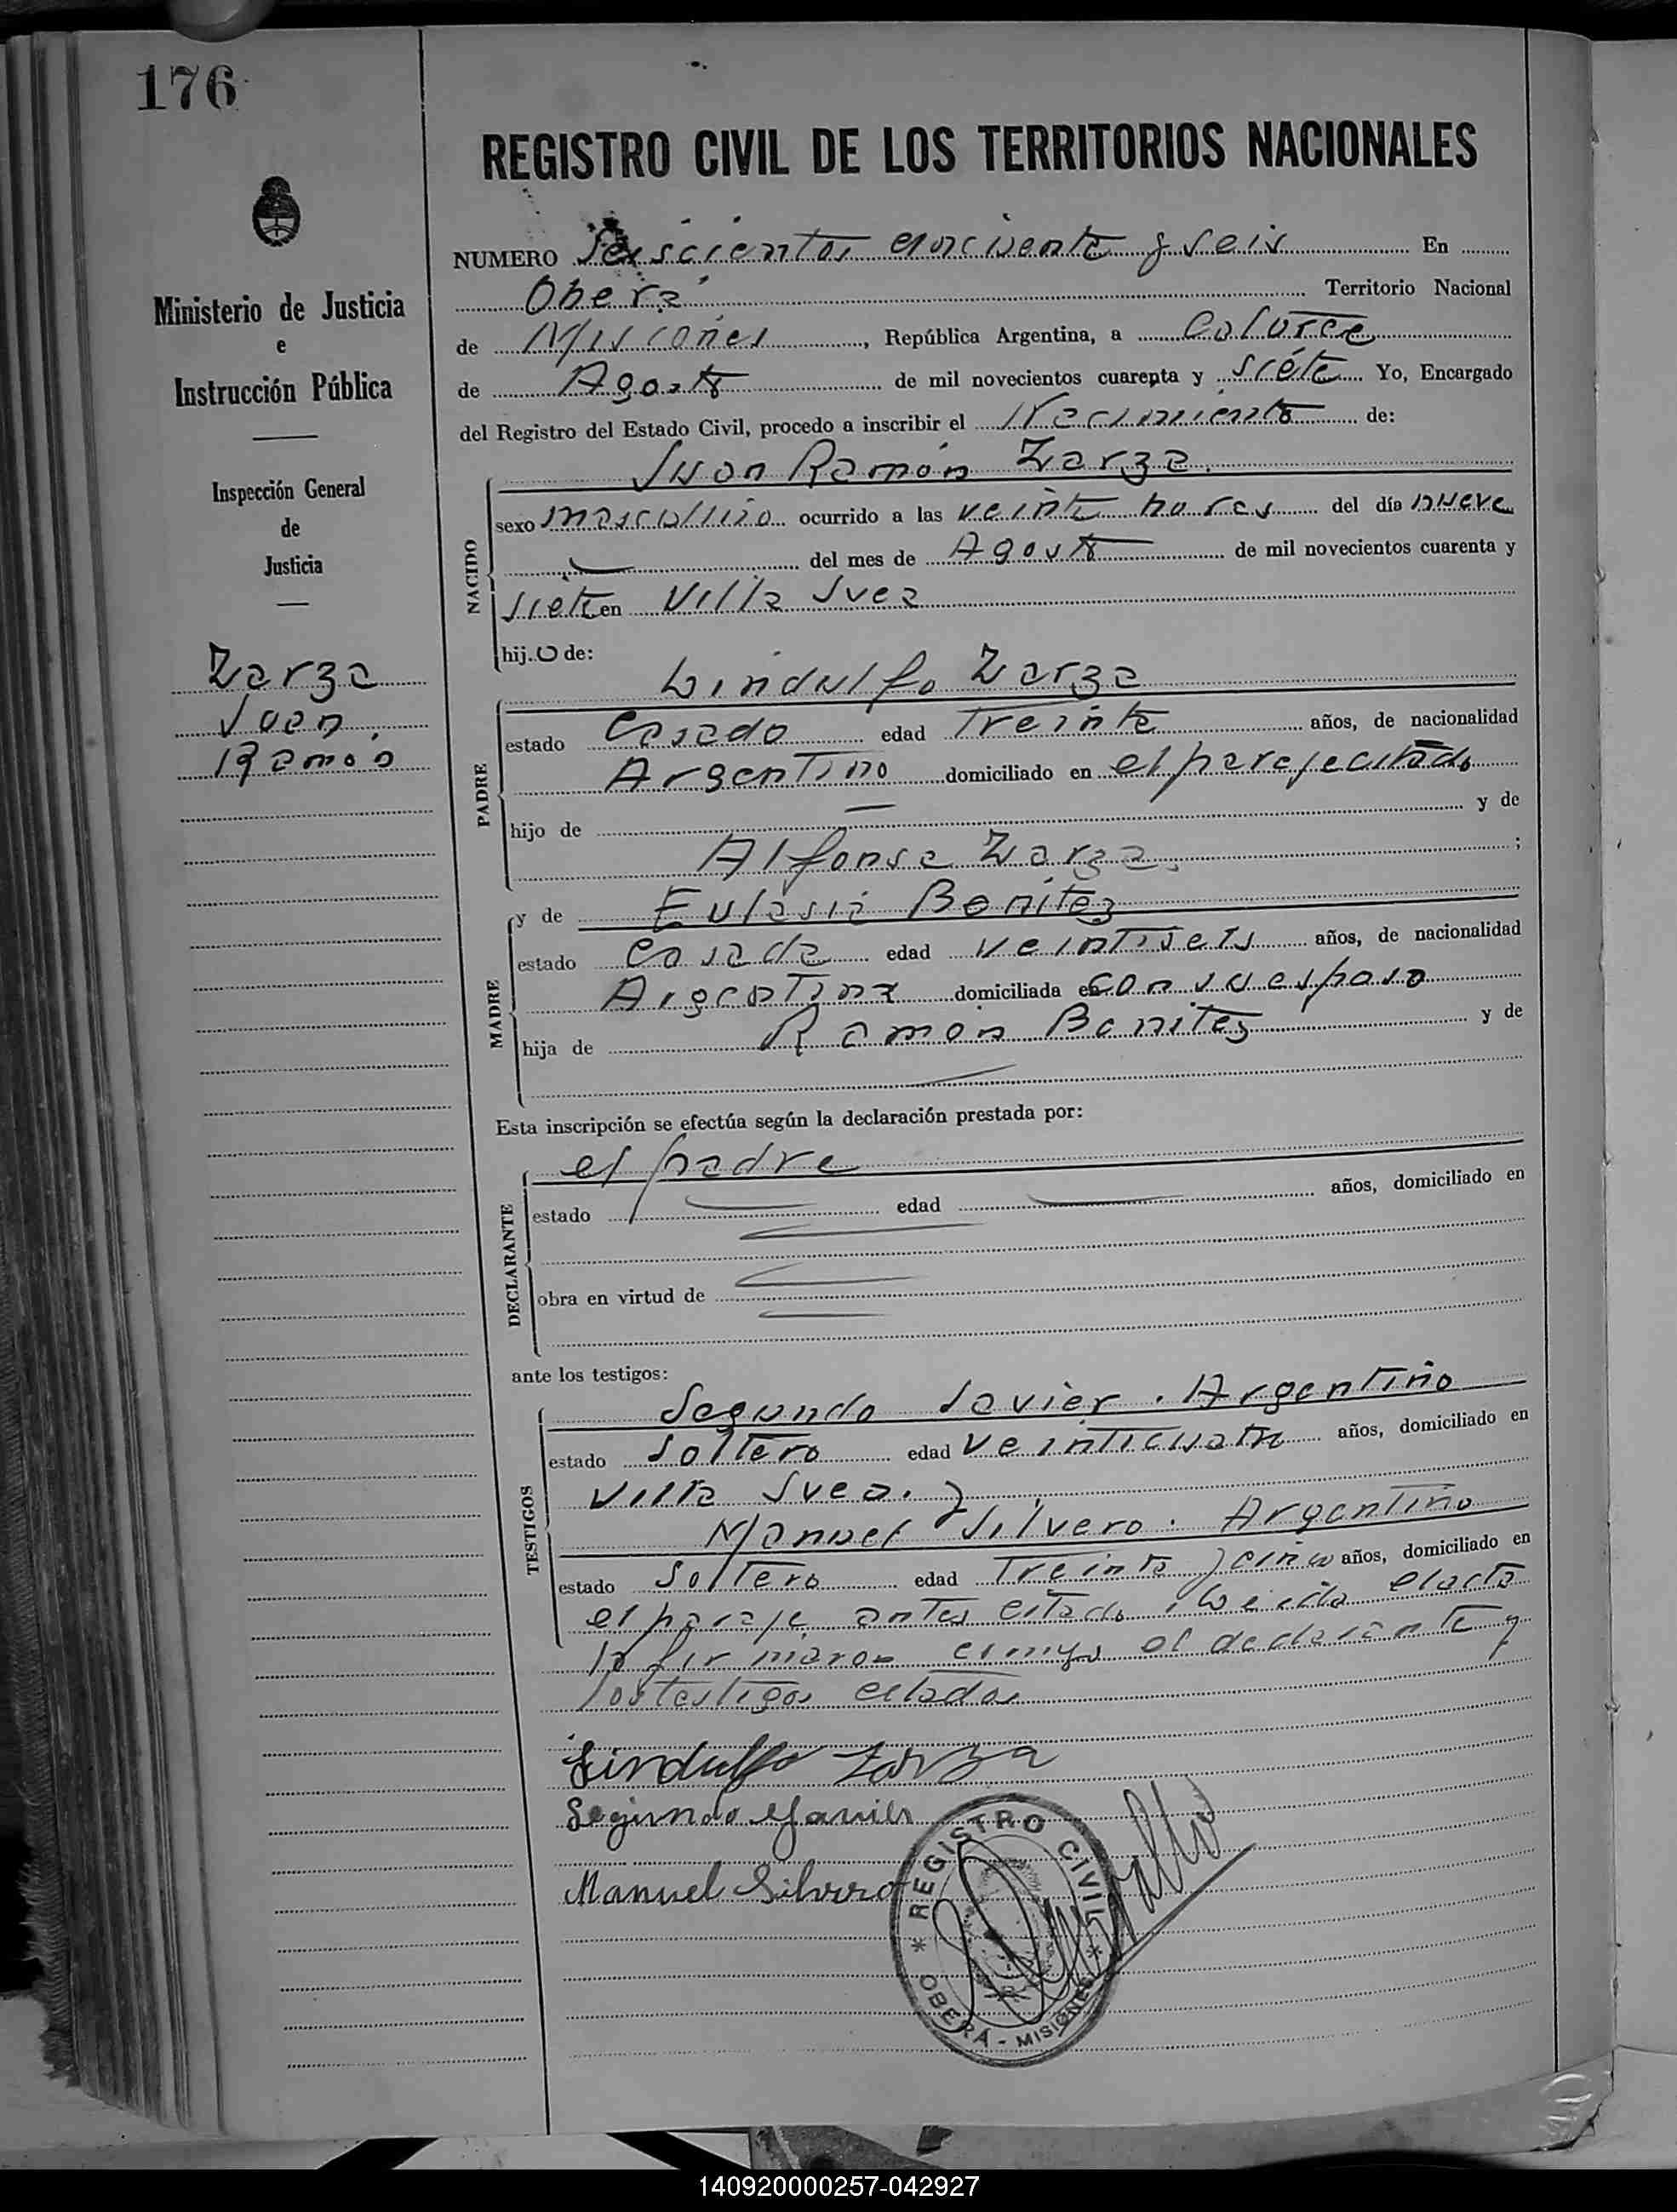 176
REGISTRO CIVIL DE LOS TERRITORIOS NACIONALES
Ministerio de Justicia
e
Instrucción Pública
Inspección General
de
Justicia
Zarza
Juan
Ramón
NUMERO Seiscientos cincuenta y seis En
Oberá Territorio Nacional
de Misiones, República Argentina, a Catorce
de Agosto de mil novecientos cuarenta y siete Yo, Encargado
del Registro del Estado Civil, procedo a inscribir el Nacimiento de:
Juan Ramón Zarza
NACIDO
sexo masculino ocurrido a las veinte horas del día nueve
del mes de Agosto de mil novecientos cuarenta y
siete en Villa Svea
hijo de:
Lindulfo Zarza
PADRE
estado Casado edad Treinta años, de nacionalidad
Argentino domiciliado en el paraje citado
hijo de — y de
Alfonsa Zarza;
y de Eulasia Benítez
MADRE
estado Casada edad veintiseis años, de nacionalidad
Argentina domiciliada en con su esposo
hija de Ramón Benitez y de
Esta inscripción se efectúa según la declaración prestada por:
el padre
DECLARANTE
estado edad años, domiciliado en
obra en virtud de
ante los testigos:
Segundo Javier. Argentino
TESTIGOS
estado Soltero edad Veinticuatro años, domiciliado en
Villa Svea. y
Manuel Silvero. Argentino
estado Soltero edad Treinta y cinco años, domiciliado en
el paraje antes citado. Leida el acta
la firmaron conmigo el declarante y
los testigos citados
Lindulfo Zarza
Segundo Javier
Manuel Silvero
* REGISTRO CIVIL *
OBERÁ - MISIONES
140920000257-042927